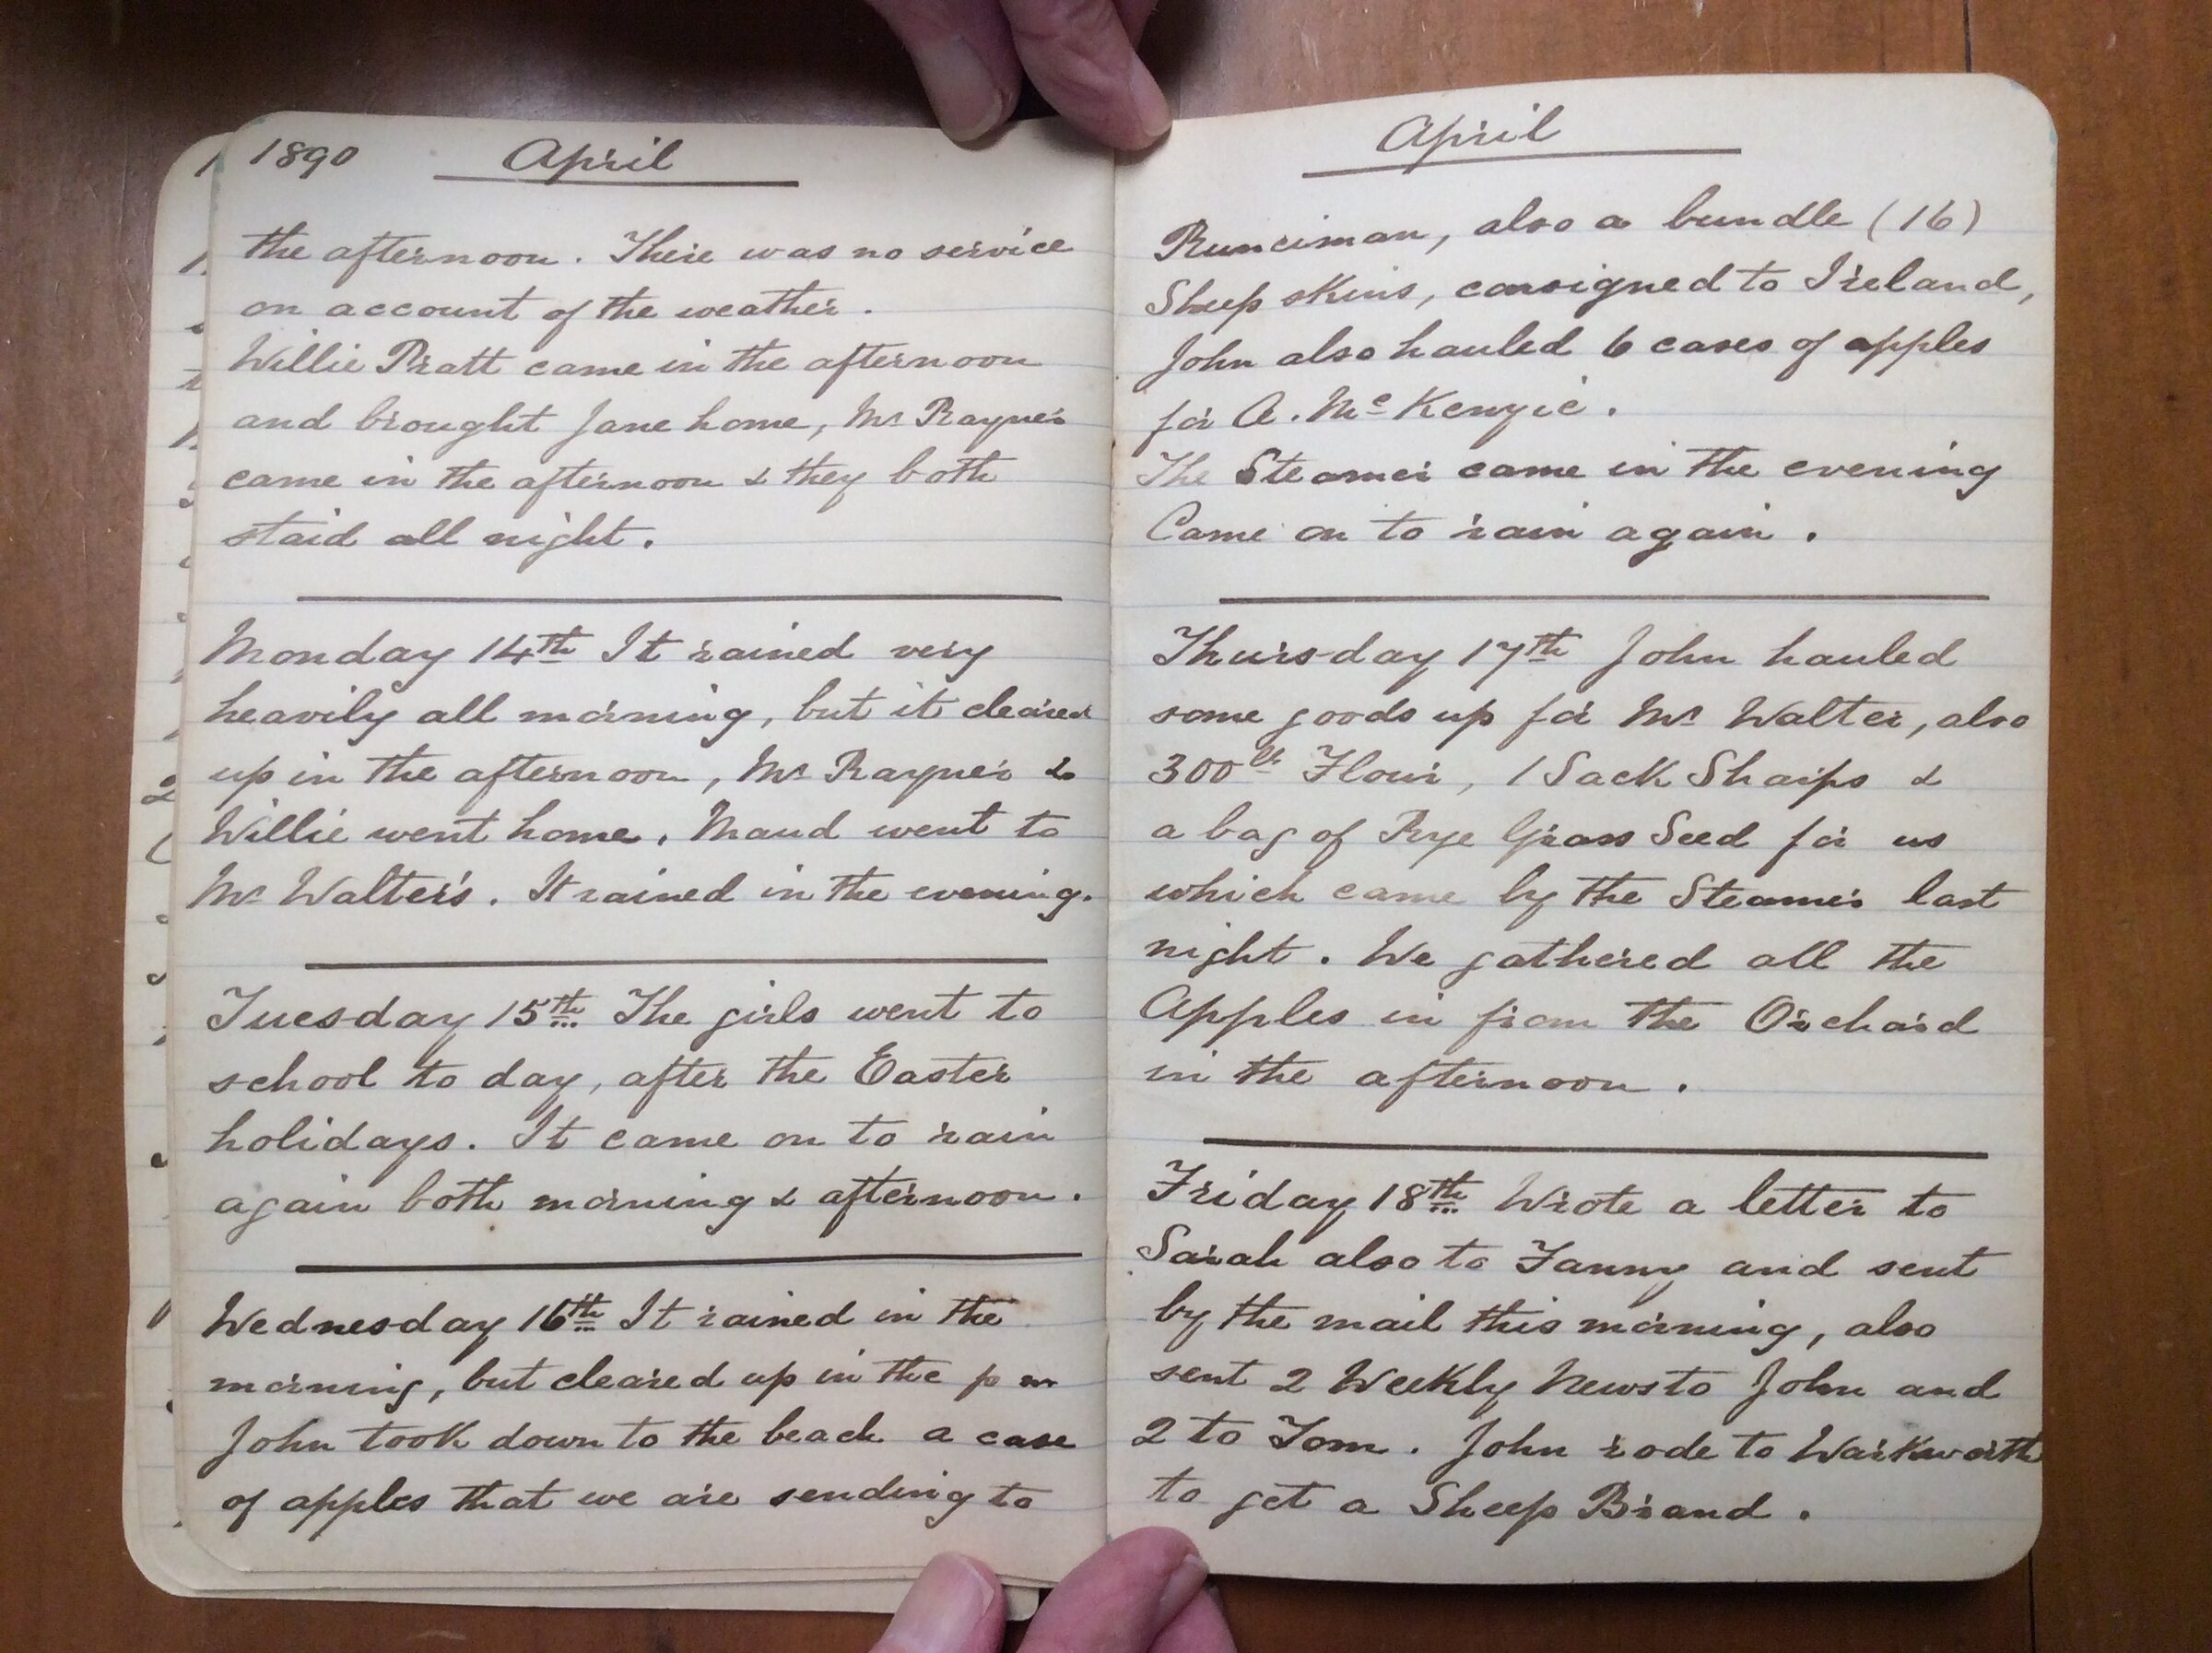 1890 April
the afternoon. There was no service
on account of the weather.
Willie Pratt came in the afternoon
and brought Jane home, Mr Rayner
came in the afternoon & they both
staid all night.
Monday 14th It rained very
heavily all morning, but it cleared
up in the afternoon, Mr Rayner &
Willie went home. Maud went to
Mr Walter's. It rained in the evening.
Tuesday 15th The girls went to
school to day, after the Easter
holidays. It came on to rain
again both morning & afternoon.
Wednesday 16th It rained in the
morning, but cleared up in the p m
John took down to the beach a case
of apples that we are sending to
April
Runciman, also a bundle (16)
Sheep skins, consigned to Ireland,
John also hauled 6 cases of apples
for A. McKenzie.
The Steamer came in the evening
Came on to rain again.
Thursday 17th John hauled
some goods up for Mr Walter, also
300lb Flour, 1 Sack Sharps &
a bag of Rye Grass Seed for us
which came by the Steamer last
night. We gathered all the
Apples in from the Orchard
in the afternoon.
Friday 18th Wrote a letter to
Sarah also to Fanny and sent
by the mail this morning, also
sent 2 Weekly News to John and
2 to Tom. John rode to Warkworth
to get a Sheep Brand.